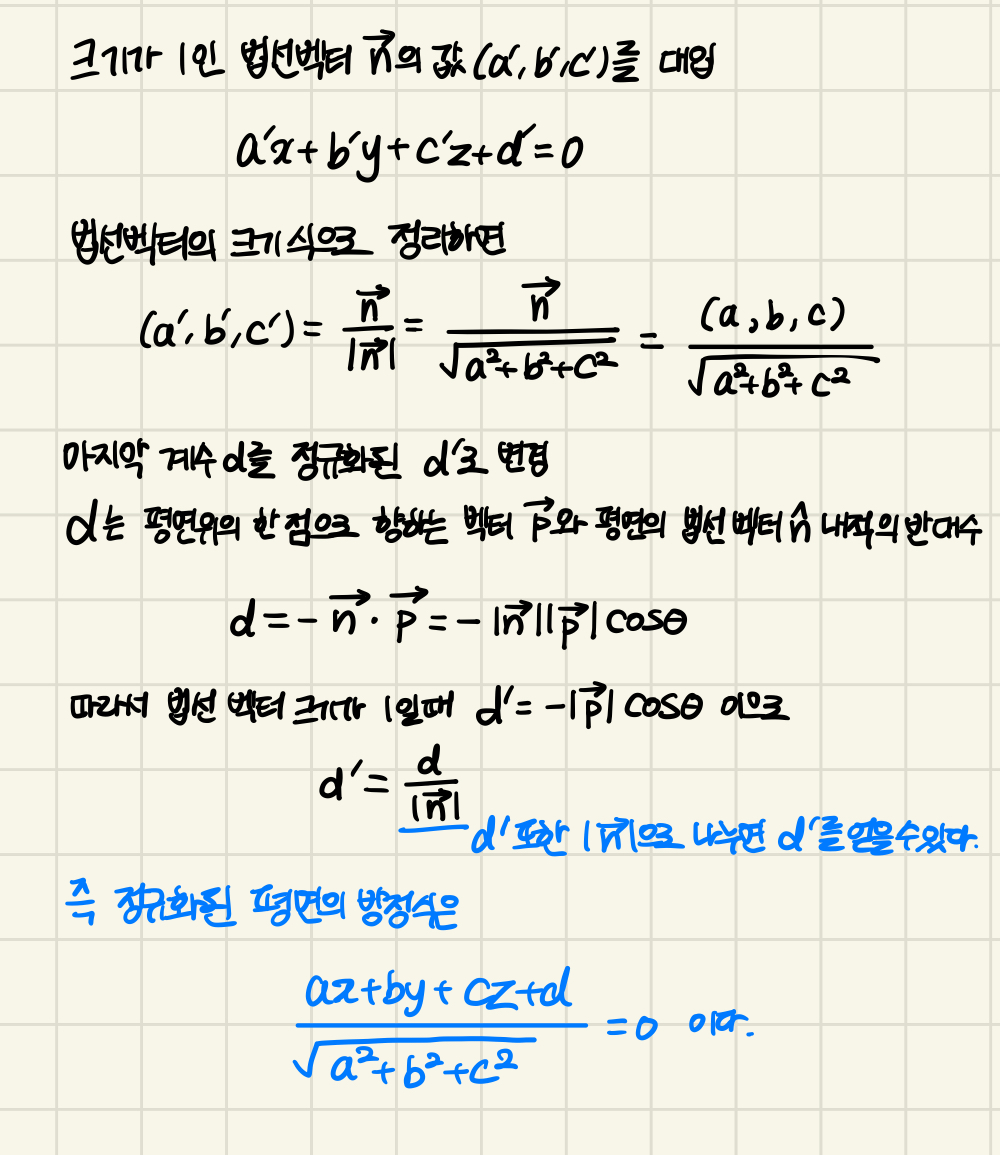 크기가 1인 법선벡터 n⃗의 값 (a′, b′, c′)를 대입
a′x + b′y + c′z + d′ = 0
법선벡터의 크기 식으로 정리하면
(a′, b′, c′) = n⃗ / |n⃗| = n⃗ / √(a² + b² + c²) = (a, b, c) / √(a² + b² + c²)
마지막 계수 d를 정규화된 d′로 변경
d는 평면위의 한 점으로 향하는 벡터 p⃗와 평면의 법선 벡터 n̂ 내적의 반대수
d = - n⃗ · p⃗ = - |n⃗||p⃗| cosθ
따라서 법선 벡터 크기가 1일때 d′ = -|p⃗| cosθ 이므로
d′ = d / |n⃗|
d′ 또한 |n⃗|으로 나누면 d′를 얻을 수 있다.
즉 정규화된 평면의 방정식은
(ax + by + cz + d) / √(a² + b² + c²) = 0 이다.